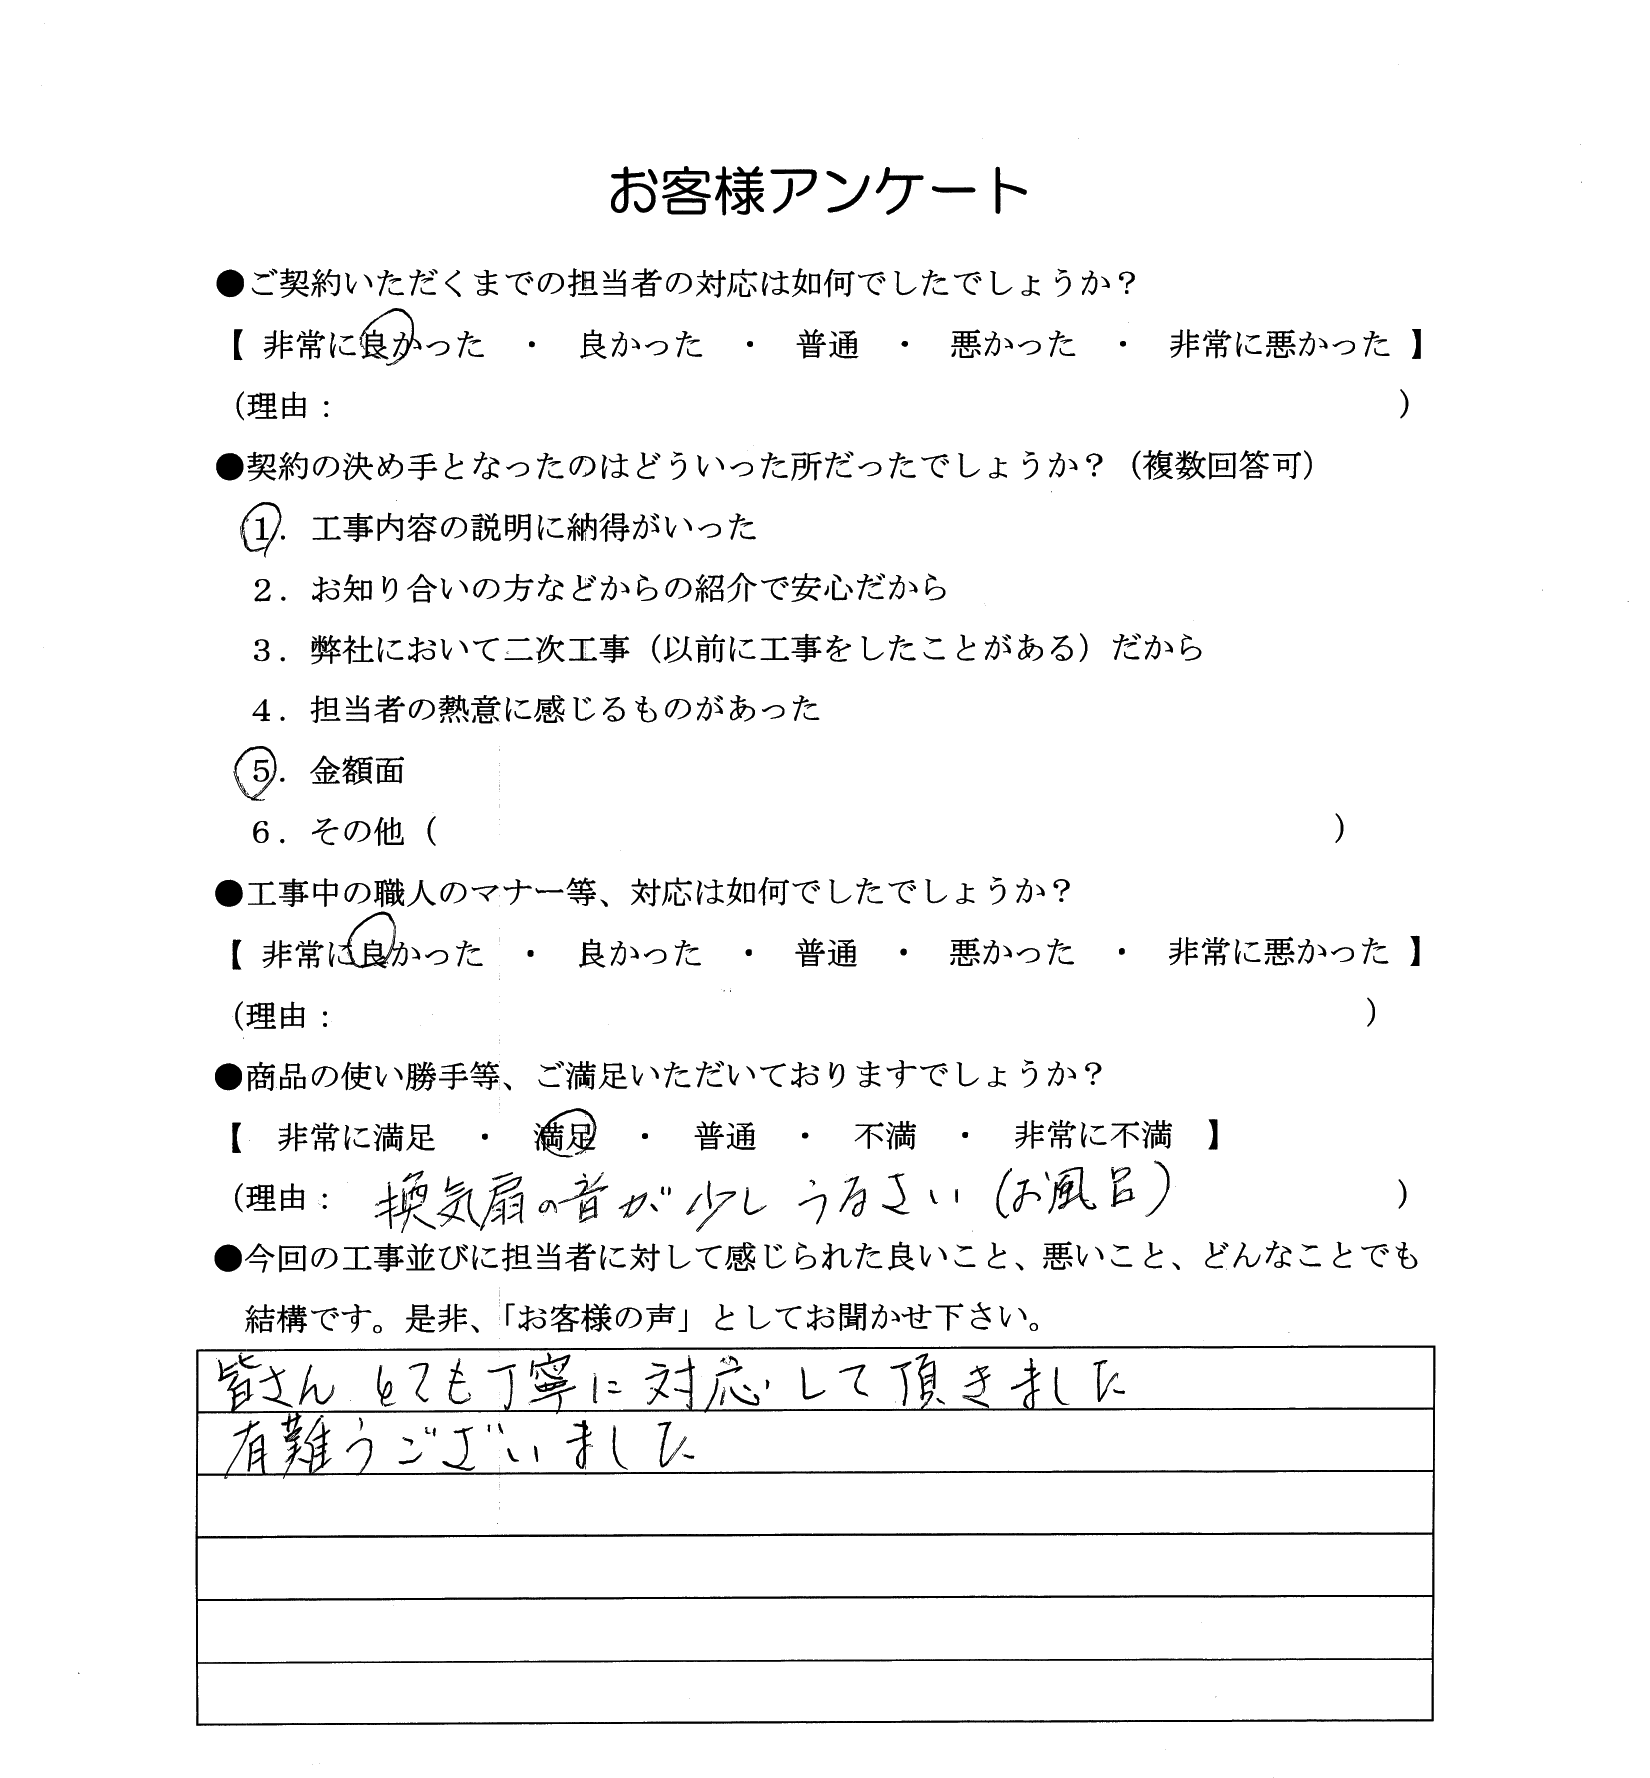 お客様アンケート
●ご契約いただくまでの担当者の対応は如何でしたでしょうか？
【 非常に良かった ・ 良かった ・ 普通 ・ 悪かった ・ 非常に悪かった 】
（理由： ）
●契約の決め手となったのはどういった所だったでしょうか？（複数回答可）
１．工事内容の説明に納得がいった
２．お知り合いの方などからの紹介で安心だから
３．弊社において二次工事（以前に工事をしたことがある）だから
４．担当者の熱意に感じるものがあった
５．金額面
６．その他（ ）
●工事中の職人のマナー等、対応は如何でしたでしょうか？
【 非常に良かった ・ 良かった ・ 普通 ・ 悪かった ・ 非常に悪かった 】
（理由： ）
●商品の使い勝手等、ご満足いただいておりますでしょうか？
【 非常に満足 ・ 満足 ・ 普通 ・ 不満 ・ 非常に不満 】
（理由： 換気扇の音が少しうるさい（お風呂） ）
●今回の工事並びに担当者に対して感じられた良いこと、悪いこと、どんなことでも
結構です。是非、「お客様の声」としてお聞かせ下さい。
皆さん とても丁寧に対応して頂きました
有難うございました